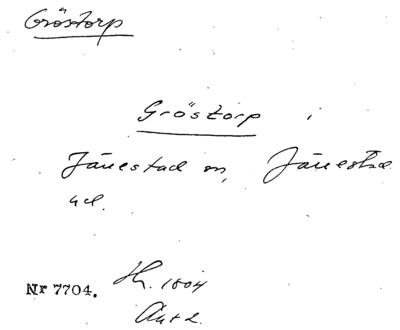 Gröstorp
Gröstorp i
Järrestad sn, Järrestads
hd.
Nr 7704. Hh. 1804
Ant 2.